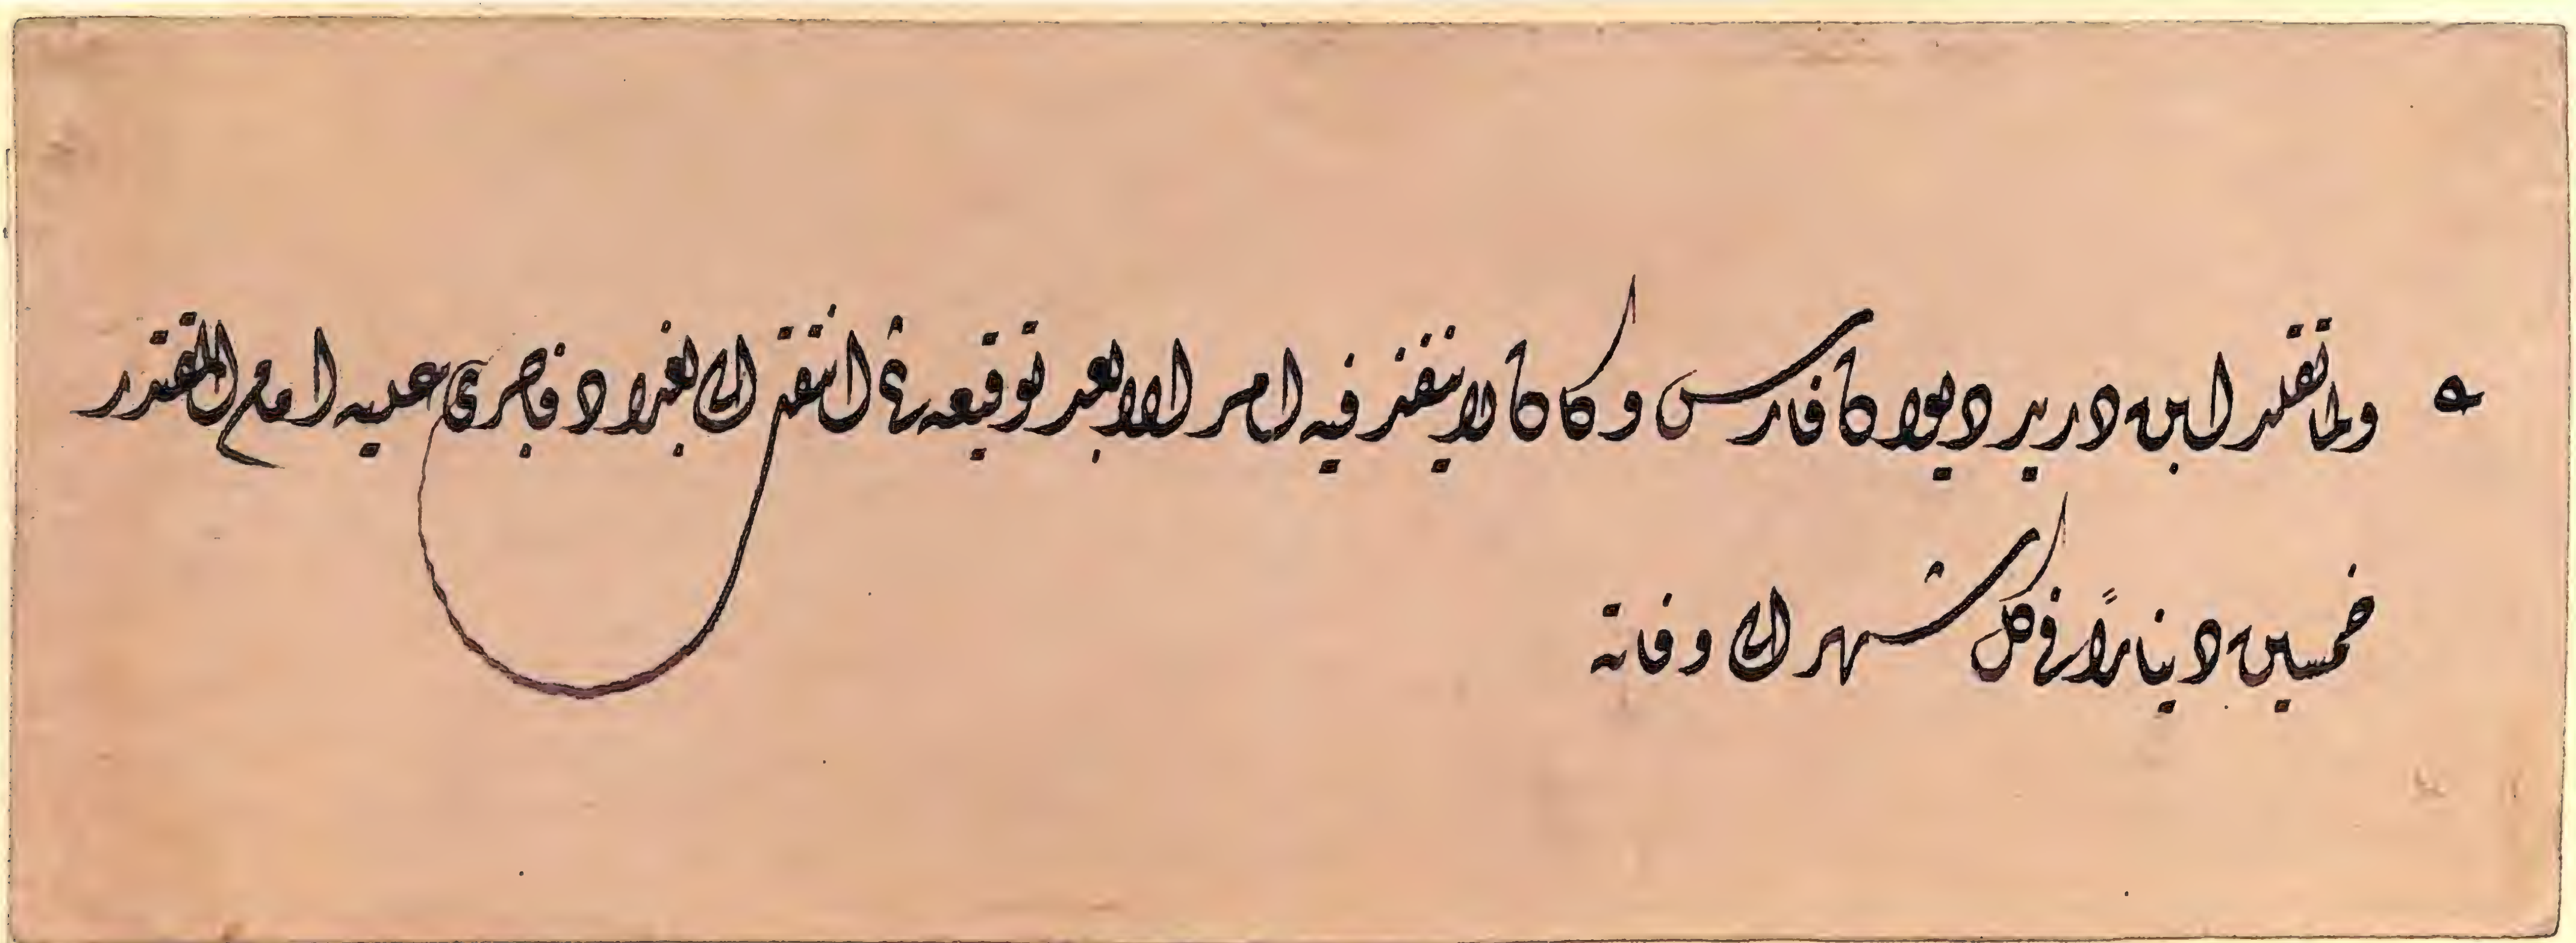 ولما تقلد ابن دريد ديوان فارس وكان لا ينفذ فيه امر الا بعد توقيعه ثم انتقل الى بغداد فاجرى عليه امام المقتدر
خمسين دينارًا في كل شهر الى وفاته